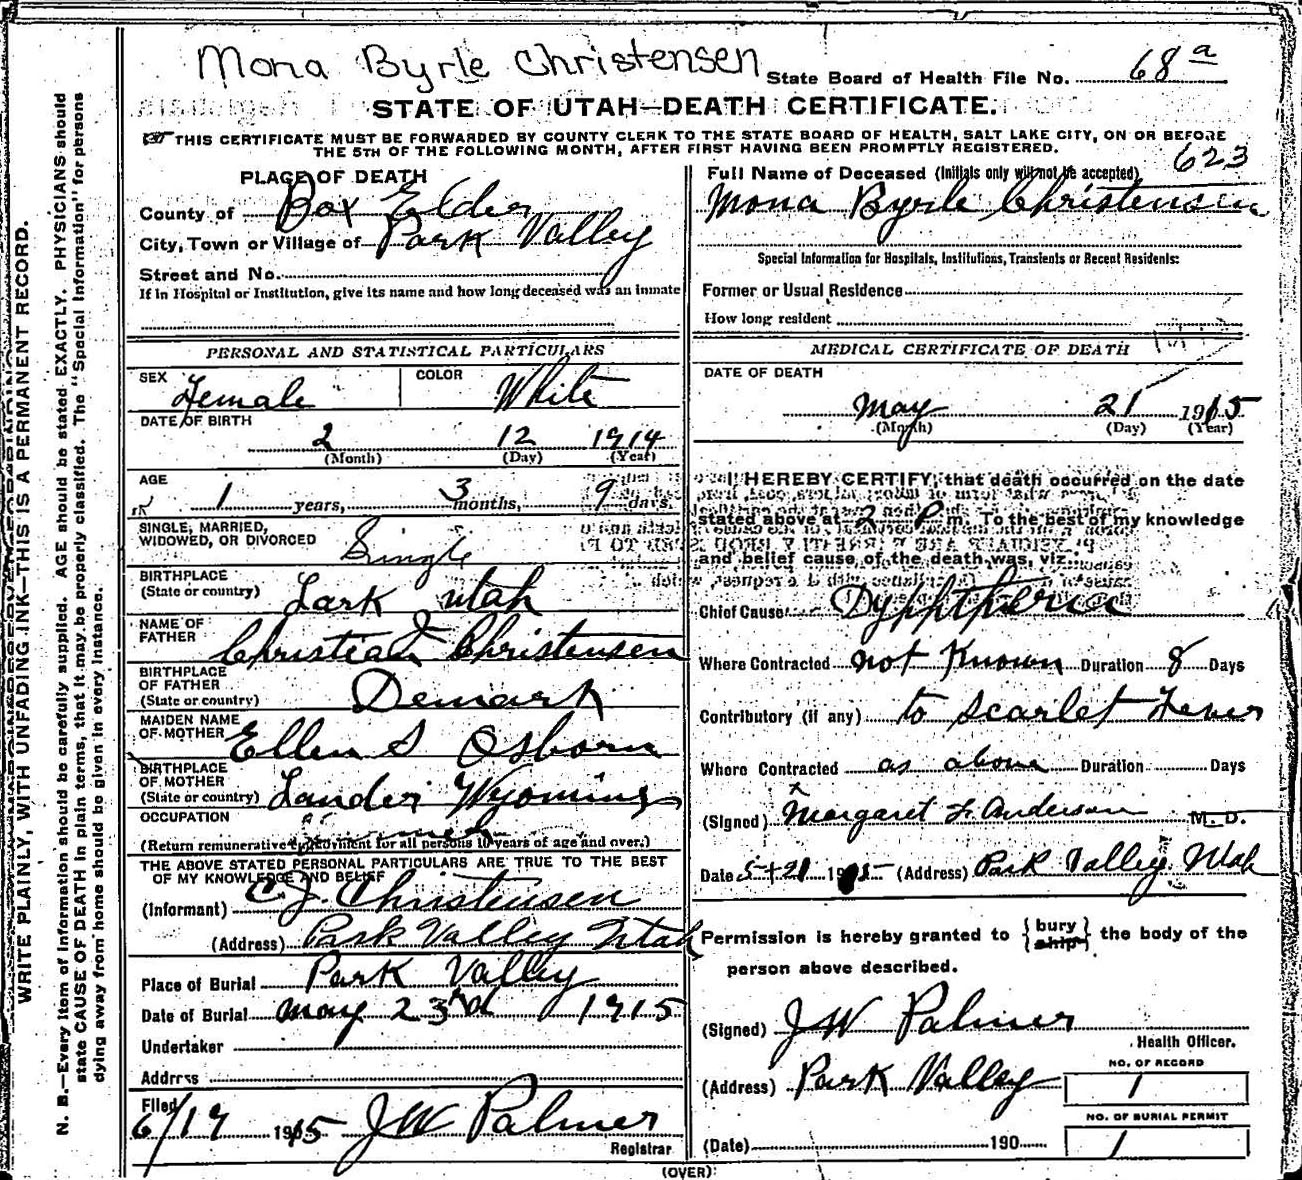 Mona Byrle Christensen
State Board of Health File No. 68 a
STATE OF UTAH—DEATH CERTIFICATE.
THIS CERTIFICATE MUST BE FORWARDED BY COUNTY CLERK TO THE STATE BOARD OF HEALTH, SALT LAKE CITY, ON OR BEFORE
THE 5TH OF THE FOLLOWING MONTH, AFTER FIRST HAVING BEEN PROMPTLY REGISTERED.
623
WRITE PLAINLY, WITH UNFADING INK—THIS IS A PERMANENT RECORD.
N. B.—Every item of information should be carefully supplied. AGE should be stated EXACTLY. PHYSICIANS should
state CAUSE OF DEATH in plain terms, that it may be properly classified. The "Special Information" for persons
dying away from home should be given in every instance.
PLACE OF DEATH
County of Box Elder
City, Town or Village of Park Valley
Street and No.
If in Hospital or Institution, give its name and how long deceased was an inmate
PERSONAL AND STATISTICAL PARTICULARS
SEX Female COLOR White
DATE OF BIRTH
2 12 1914
(Month) (Day) (Year)
AGE
1 years, 3 months, 9 days.
SINGLE, MARRIED,
WIDOWED, OR DIVORCED Single
BIRTHPLACE
(State or country) Lark Utah
NAME OF
FATHER Christian J Christensen
BIRTHPLACE
OF FATHER
(State or country) Demark
MAIDEN NAME
OF MOTHER Ellen S Osborn
BIRTHPLACE
OF MOTHER
(State or country) Lander Wyoming
OCCUPATION
(Return remunerative employment for all persons 10 years of age and over.)
THE ABOVE STATED PERSONAL PARTICULARS ARE TRUE TO THE BEST
OF MY KNOWLEDGE AND BELIEF
(Informant) C J. Christensen
(Address) Park Valley Utah
Place of Burial Park Valley
Date of Burial May 23rd 1915
Undertaker
Address
Filed
6/17 1915 JW Palmer
Registrar
Full Name of Deceased (Initials only will not be accepted)
Mona Byrle Christensen
Special Information for Hospitals, Institutions, Transients or Recent Residents:
Former or Usual Residence
How long resident
MEDICAL CERTIFICATE OF DEATH
DATE OF DEATH
May 21 1915
(Month) (Day) (Year)
I HEREBY CERTIFY, that death occurred on the date
stated above at 2 P m. To the best of my knowledge
and belief cause of the death was, viz.
Chief Cause Dyphtheria
Where Contracted not Known Duration 8 Days
Contributory (if any) to Scarlet Fever
Where Contracted as above Duration Days
(Signed) Margaret F. Anderson M. D.
Date 5+21 1915 (Address) Park Valley Utah
Permission is hereby granted to {bury ship} the body of the
person above described.
(Signed) JW Palmer
Health Officer.
(Address) Park Valley
NO. OF RECORD
1
NO. OF BURIAL PERMIT
1
(Date) 190
(OVER)